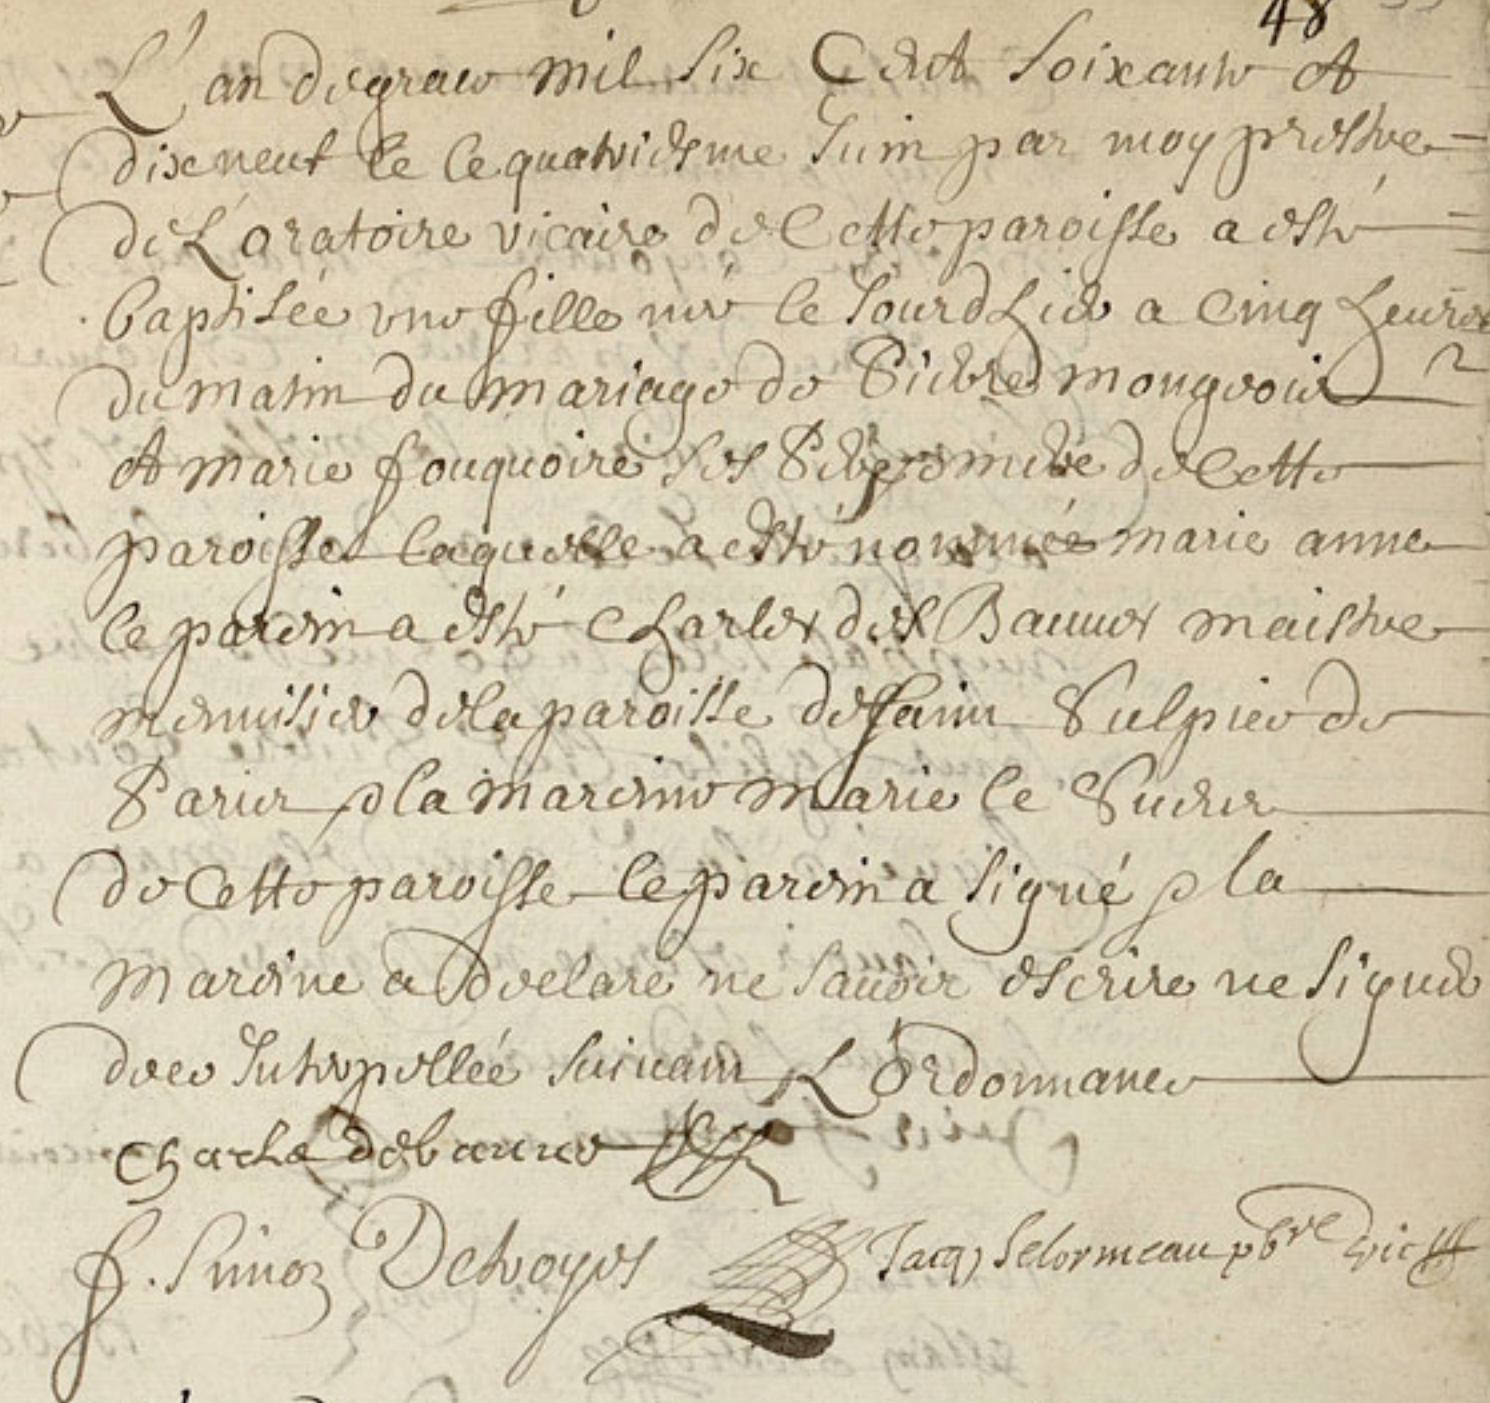 48
L'an de grace mil six Cent soixante et
dix neuf le le quatriesme Juin par moy prestre
de L'oratoire vicaire de Cette paroisse a esté
baptisée une fille née le Jourdhier a cinq heures
du matin du mariage de Pierre mongroin
et marie fouquoire ses Pere et mere de Cette
paroisse laquelle a esté nommée marie anne
le parein a esté Charles des Bauues maistre
menuisier de la paroisse de saint Sulpice de
Paris et la mareine marie le Sueur
de Cette paroisse le parein a signé et la
mareine a declaré ne sauoir escrire ne signer
de ce Interpellée suiuant L'ordonnance
Charle debauue
f. Simon Detroyes Jacq) Selormeau pbre vic